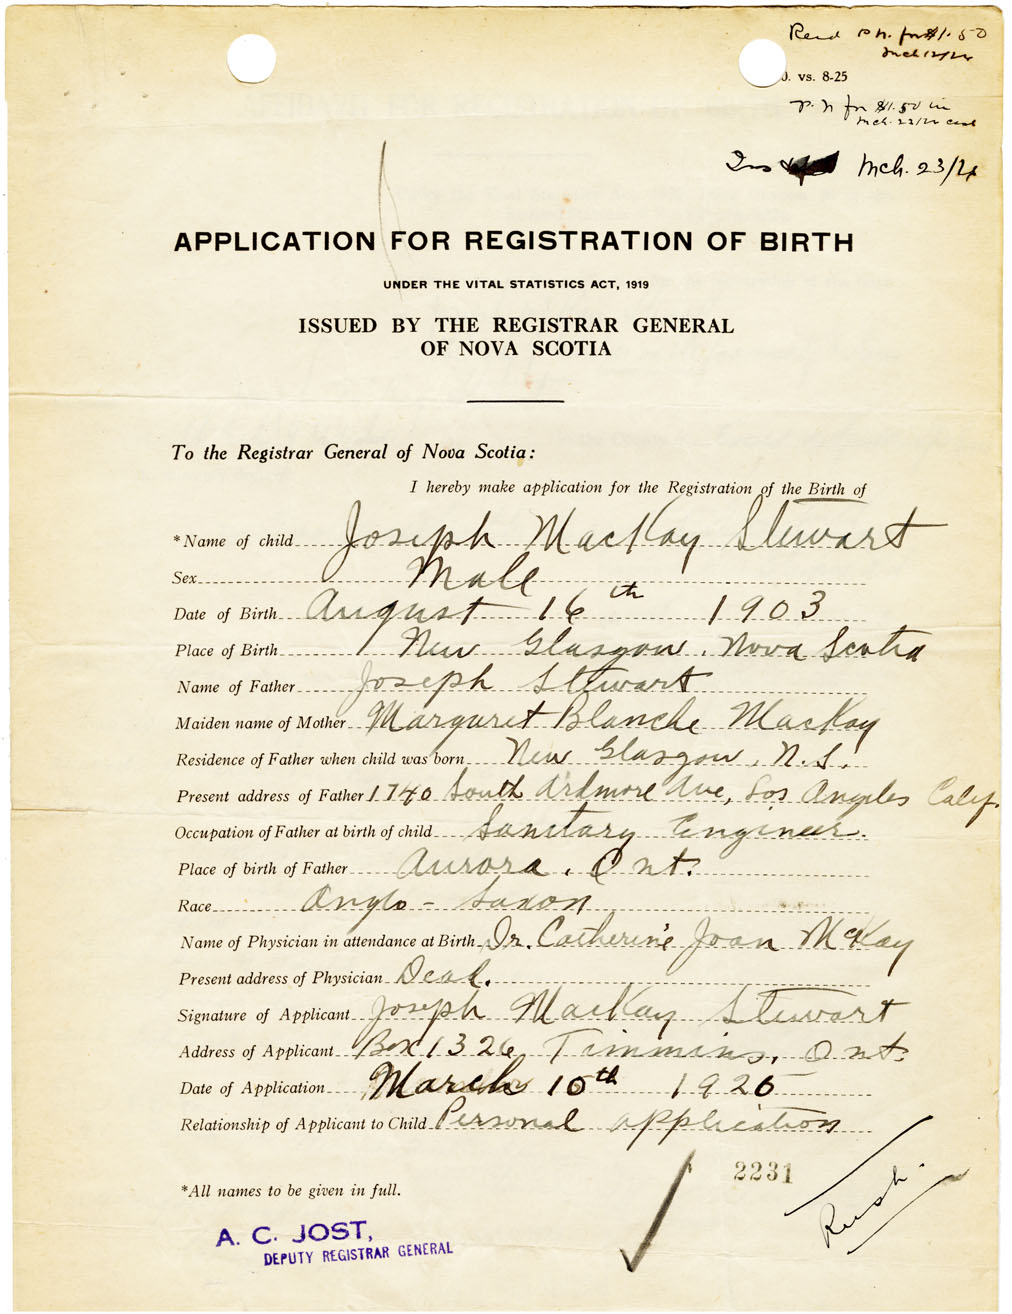 Recd P.N. for $1.50
Mch 12/26
0. vs. 8-25
P.N for $1.50 in
Mch. 23/26
Ins Mch. 23/26
APPLICATION FOR REGISTRATION OF BIRTH
UNDER THE VITAL STATISTICS ACT, 1919
ISSUED BY THE REGISTRAR GENERAL
OF NOVA SCOTIA
To the Registrar General of Nova Scotia:
I hereby make application for the Registration of the Birth of
*Name of child Joseph MacKay Stewart
Sex Male
Date of Birth August 16th 1903
Place of Birth New Glasgow, Nova Scotia
Name of Father Joseph Stewart
Maiden name of Mother Margaret Blanche MacKay
Residence of Father when child was born New Glasgow, N.S.
Present address of Father 1740 South Ardmore Ave, Los Angeles Calif.
Occupation of Father at birth of child Sanitary Engineer.
Place of birth of Father Aurora, Ont.
Race Anglo-Saxon
Name of Physician in attendance at Birth Dr. Catherine Joan McKay
Present address of Physician Dead.
Signature of Applicant Joseph MacKay Stewart
Address of Applicant Box 1326 Timmins, Ont.
Date of Application March 10th 1926
Relationship of Applicant to Child Personal application
2231
*All names to be given in full.
Rush.
A. C. JOST,
DEPUTY REGISTRAR GENERAL